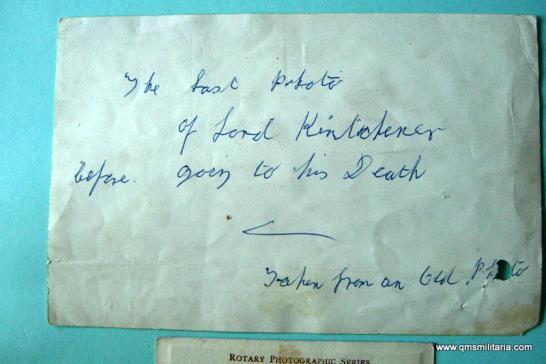 The Last Photo
of Lord Kintchener
before. going to his Death
Taken from an Old. Photo
www.qmsmilitaria.com
ROTARY PHOTOGRAPHIC SERIES